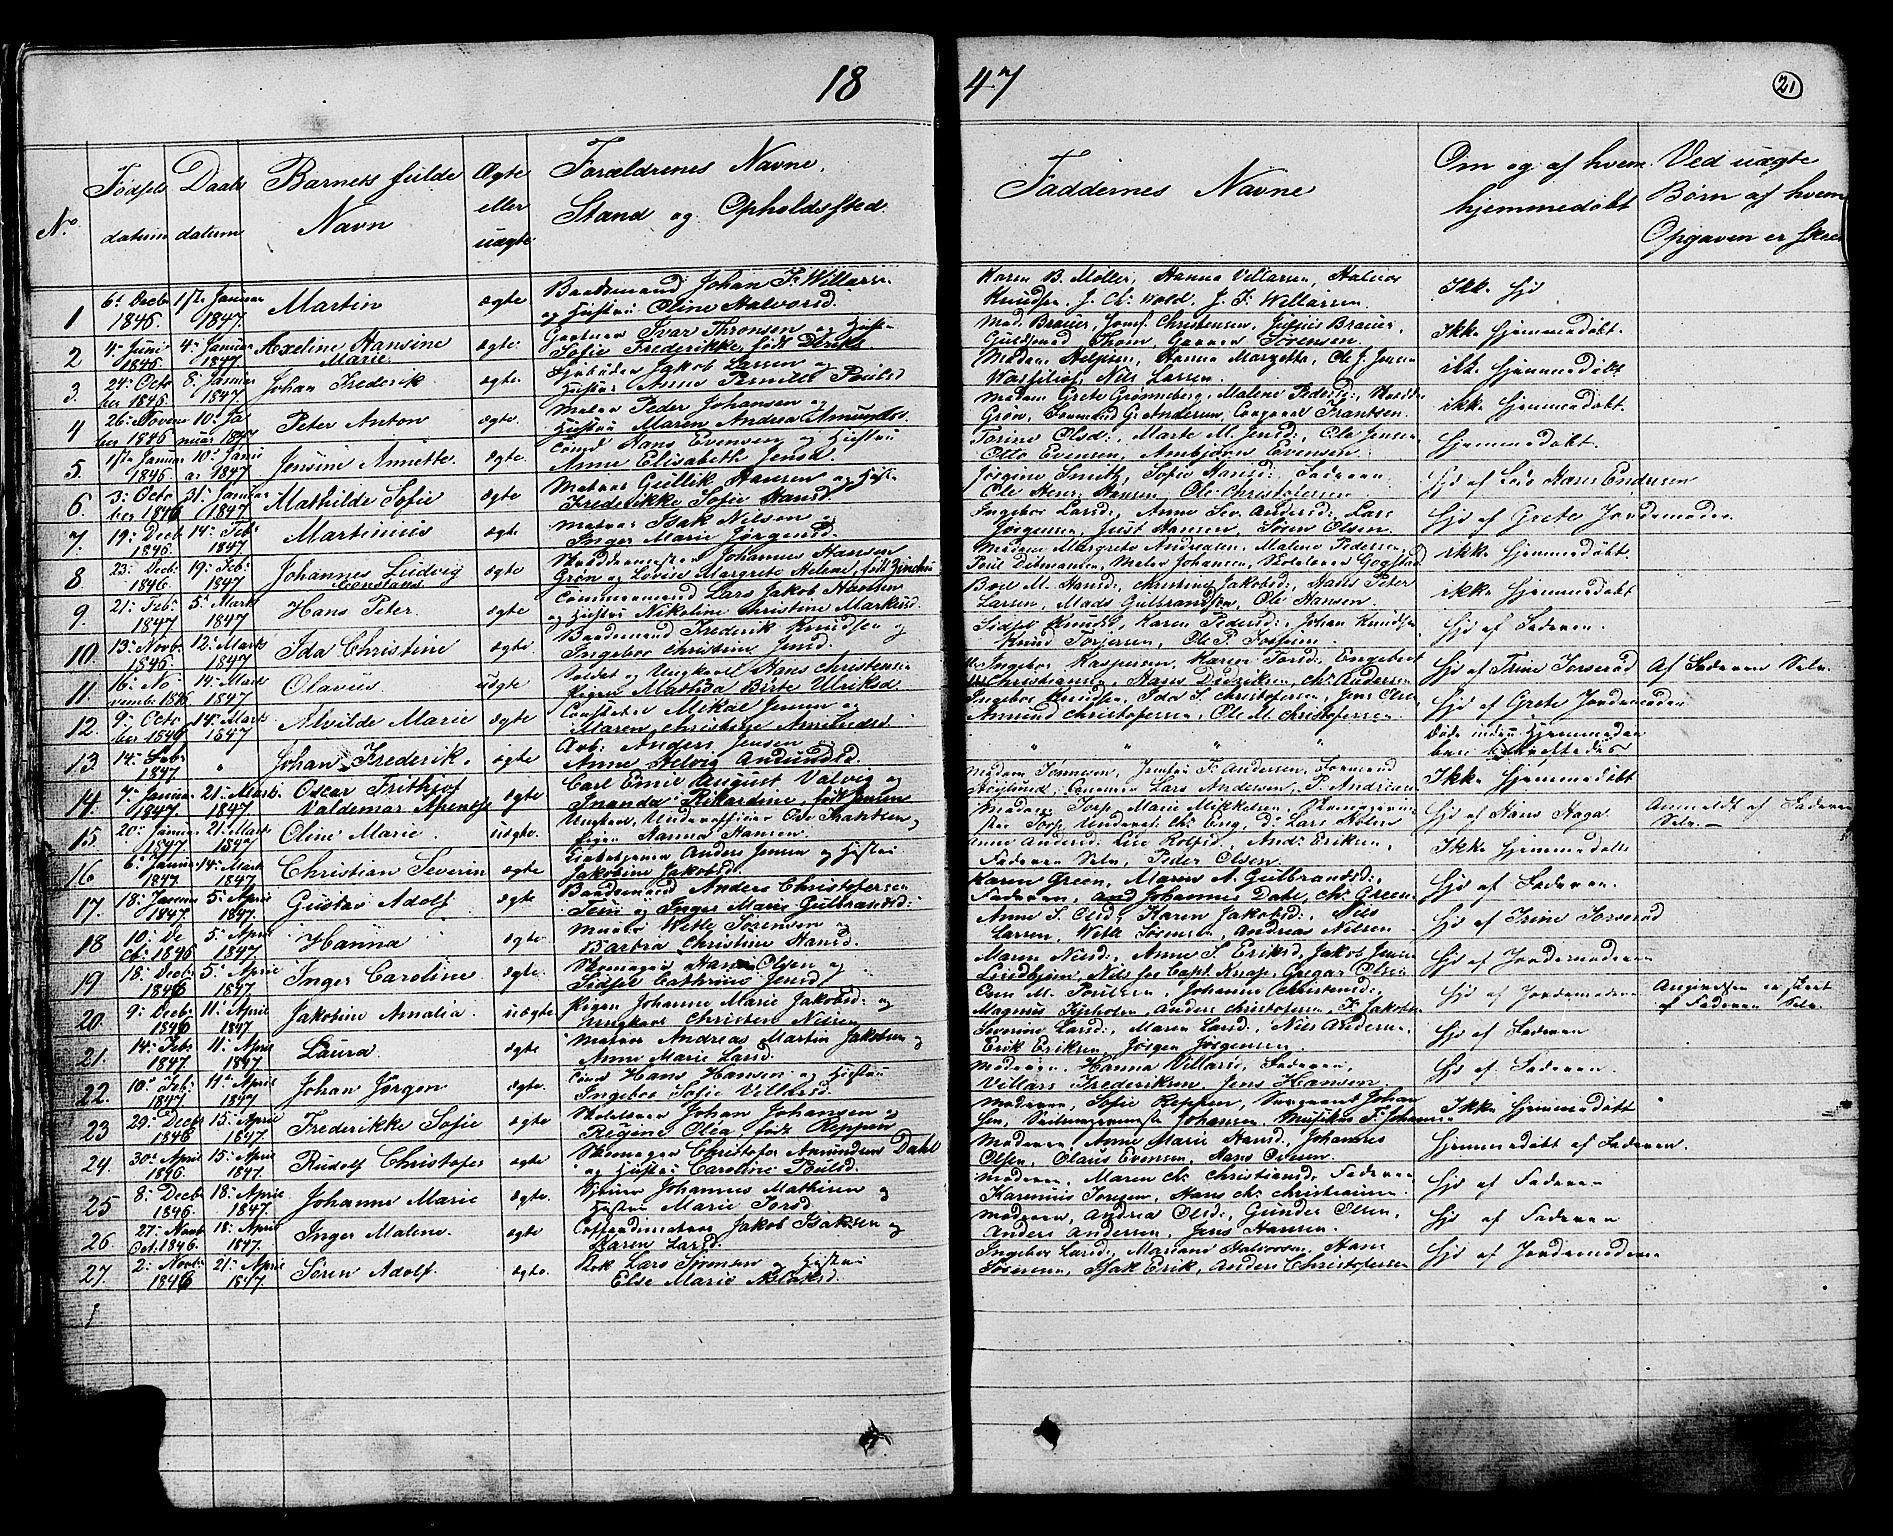 18 47
21
No
Fødsels datum
Daabs datum
Barnets fulde Navn
Ægte eller uægte
Forældrenes Navne, Stand og Opholdssted.
Faddernes Navne
Om og af hvem hjemmedøbt
Ved uægte Børn af hvem Opgaven er skeet
1 6te Decbr 1846. 1ste Januar 1847. Martin ægte Baadsmand Johan F. Willarsen og Hustru Oline Halvorsd. Karen B. Møller, Hanna Villarsen, Knudsen, J. Chr. Wold, J. F. Willarsen Ikke Hjd
2 4. Juni 1846. 4. Januar 1847 Axeline Hansine Marie ægte. Ivar Thronsen og Hustru Sofie Frederikke, født Mad. Brauer, Jomf. Christensen, Julius Brauer, Guldsmed Thom, Gunner Sørensen. Ikke Hjemmedøbt.
3. 24. October 1846. 8. Januar 1847 Johan Frederik. ægte. Jakob Larsen og Hustru Anne Pernille Poulsd Hanna Margrethe, Ole J. Jensen Nils Larsen. ikke hjemmedøbt
4 26. November 1846 10. Januar 1847 Peter Anton ægte. Matros Peder Johansen og Hustru Maren Andrea Amundsd. Madam Grete Grønneberg, Malene Pedersd., Grøn, G. Andersen, Frantsen. ikke hjemmedøbt.
5. 1ste Januar 1846 10. Januar 1847 Jensine Annette. ægte Hans Evensen og Hustru Anne Elisabeth Jensd. Torine Olsd., Marte M. Jensd., Ole Jensen Otto Evensen, Ambjørn Evensen. Hjemmedøbt.
6. 3. October 1846 31. Januar 1847 Mathilde Sofie ægte Matros Gullik Hansen og Hustru Frederikke Sofie Hansd. Jørgine Smith, Sofie Hansd., Faderen, Ole Henr. Hansen, Ole Christofersen Hjd af Hans Endersen
7. 19. Decbr 1846. 14. Febr 1847. Martinius ægte Matros Isak Nilsen og Inger Marie Jørgensd. Ingebor Larsd., Anne Andersd., Lars Jørgensen, Just Hansen, Søren Olsen. Hjd af Grete Jordemoder
8 23. Decbr. 1846 19. Febr. 1847 Johannes Ludvig Constans ægte Skræddermester Johannes Hansen Grøn og Lovise Margrete Helene, født Madam Margrete Andreasen, Malene Pedersen, Poul Ditmansen, Johansen, Skolelærer Gogstad ikke hjemmedøbt.
9 21. Febr. 1847 5. Marts 1847 Hans Peter. ægte Lars Jakob Hansen og Hustru Nikoline Christine Markusd. M. Hansd., Jakobsd., Peter Larsen, Mads Gulbrandsen, Ole Hansen. ikke hjemmedøbt
10. 13. Novb. 1846 12. Marts 1847 Ida Christine ægte. Baadsmand Frederik Knudsen og Ingebor Christine Jensd. Karen Pedersd., Johan Knudsen, Knud Torjersen, Ole P. Hjd af Faderen.
11 16. November 1846 14. Marts 1847 Olavus uægte Soldat og Ungkarl Hans Christensen Pigen Mathilda Birte Ulriksd. Ingebor Kaspersen, Karen Torsd., Engebret Christiansen, Hans Chr. Andersen Hjd af Trine Torserød Af Faderen Selv.
12. 9. October 1846 14. Marts 1847 Alvilde Marie ægte Mikal Jensen og Maren Christine Amundsd. Ingebor Knudsen, Ida S. Christofersen, Jens Amund Christofersen, Ole M. Christofersen Hjd af Grete Jordemoder
13. 14. Febr 1847 " Johan Frederik. ægte Arb. Anders Jensen og Anne Helvig Amundsd. " " " " Døde inden Hjemmedaaben bekræftedes
14. 7. Januar 1847. 21. Marts 1847 Oscar Frithjof Valdemar ægte Carl Emil August Valvig og Inanda Rikardine, født Jensen Madam Tønnesen, Jomfru F. Andersen, Lars Andersen, P. Andersen Ikke Hjemmedøbt
15. 20. Januar 1847 21. Marts 1847 Oline Marie. uægte. Ungkarl, Underofficer Ole Frantsen, Pigen Hanna Hansen. Madam Torp, Marie Mikkelsen, Torp, Underof. Chr. Eng, D. Lars Olsen Hjd af Hans Haga Anmeldt af Faderen Selv.
16 6. Januar 1847. 14. Marts 1847. Christian Severin ægte Anders Jensen og Hustru Jakobine Jakobsd. Anne Andersd. Lise Rolfsd., And. Eriksen, Faderen Selv, Peder Olsen. Ikke Hjemmedøbt
17. 18. Januar 1847 5. April 1847. Gustav Adolf. ægte. Baadsmand Anders Christofersen og Inger Marie Gulbrandsd. Karen Green, Maren A. Gulbrandsd., Faderen, Johannes Dahl, Chr. Green Hjd af Faderen.
18 10. Decbr. 1846 5. April 1847 Hanna ægte. Wette Sørensen og Barbra Christine Hansd. Anne S. Olsd., Karen Jakobsd., Nils Larsen, Wette Sørensen, Andreas Nilsen Hjd af Trine Torserød
19 18. Decbr. 1846 5. April 1847. Inger Caroline ægte. Skomager Hans Olsen og Sidsel Cathrine Jensd. Maren Nilsd., Anne S. Eriksd., Jakob Jensen Lindbjøn, Nils fra Capt. Knap, Gregar Olsen Hjd af Jordemoderen
20. 9. Decbr. 1846 11. April 1847 Jakobine Amalia. uægte Pigen Johanne Marie Jakobsd. og Ungkarl Christen Nilsen M. Poulsen, Johanne Christensd., Magnus Kjerholm, Anders Christofersen, F. Jakobsen Hjd af Jordemoderen Angivelsen er skeet af Faderen Selv.
21. 14. Febr. 1847 11. April 1847. Laura. ægte Matros Andreas Martin Jakobsen og Anne Marie Larsd. Severine Larsd., Maren Larsd., Nils Andersen, Erik Eriksen, Jørgen Jørgensen. Hjd af Faderen
22. 10. Febr. 1847 11. April 1847 Johan Jørgen ægte. Hans Hansen og Hustru Ingebor Sofie Villarsd. Moderen, Hanna Villarsd., Faderen, Villars Frederiksen, Jens Hansen. Hjd af Faderen.
23 29. Decbr 1846 15. April 1847. Frederikke Sofie ægte Johan Johansen og Regine Olea, født Reppen Moderen, Sofie Reppen, Sergeant Johansen, Johansen, Musikus F. Johansen Ikke Hjemmedøbt
24. 30. April 1846. 15. April 1847. Rudolf Christofer ægte Skomager Christofer Amundsen Dahl og Hustru Caroline Poulsd. Moderen Anne Marie Hansd., Johannes Olsen, Olaus Evensen, Hans Ovesen. Hjemmedøbt af Faderen.
25 8. Decbr 1846. 18. April 1847. Johanne Marie ægte. Johannes Mathisen og Hustru Marie Torsd. Moderen, Maren Chr. Christiansd., Faderen Rasmus Hans Chr. Christiansen. Hjd af Faderen
26. 27. Novb Oct. 1846. 18. April 1847. Inger Malene. ægte Jakob Isaksen og Karen Larsd. Moderen, Andrea Olsd., Gunder Olsen, Anders Andersen, Jens Hansen. Hjd af Faderen
27. 2. Novbr. 1846 21. April 1847. Søren Adolf. ægte. Kok Lars Sørensen og Hustru Else Marie Isaksd. Ingebor Larsd., Mariane Halvorsen, Hans Sørensen, Isak Erik, Anders Christofersen Hjd af Jordemoderen